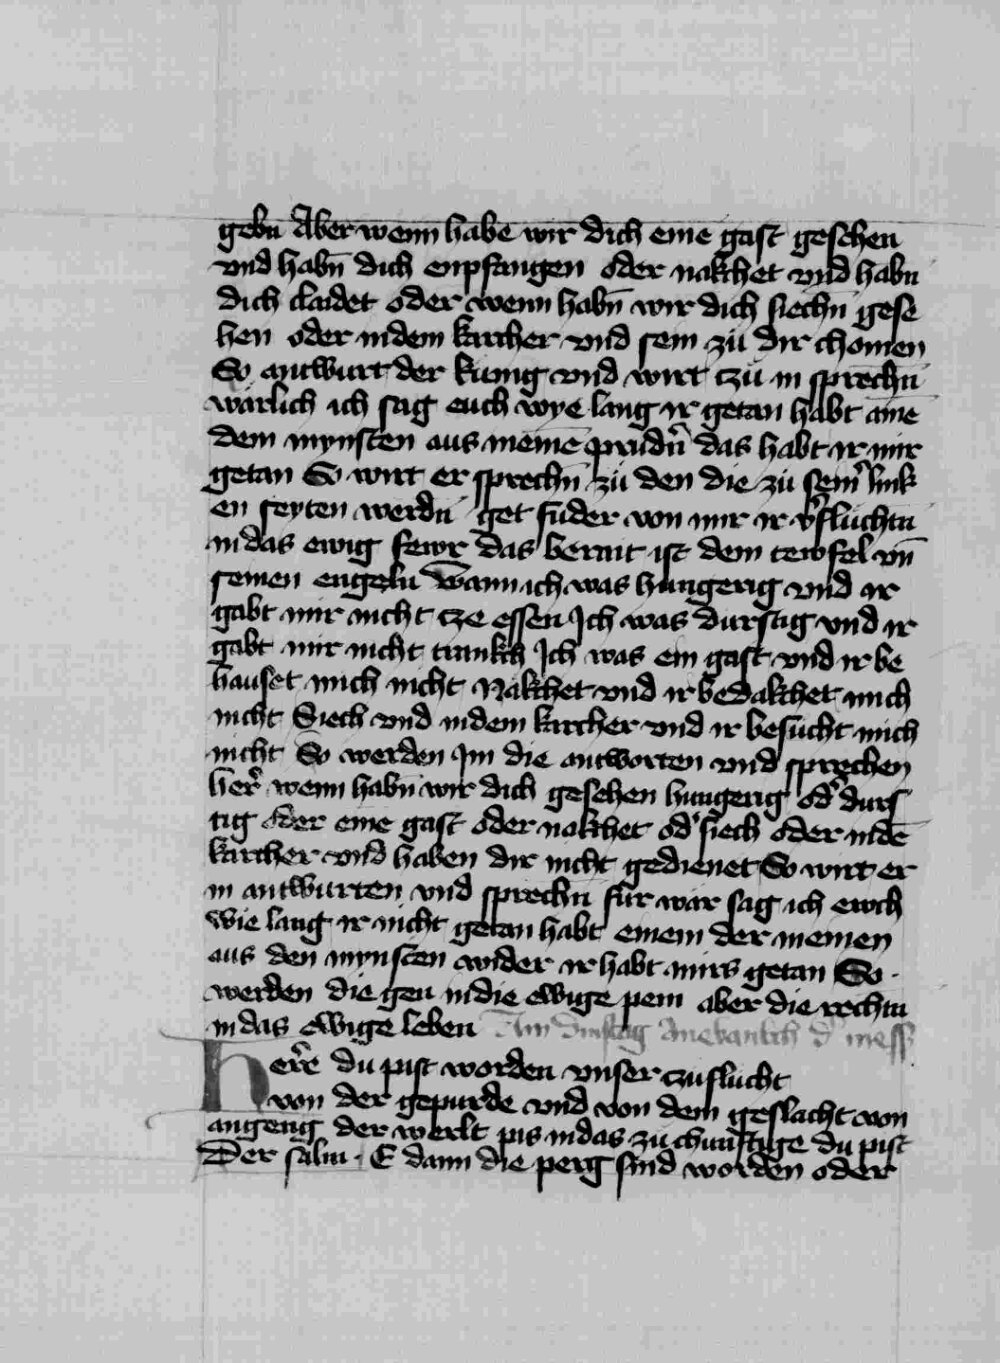 gebn Aber wenn habe wir dich eine gast gesehen
vnd habn̄ dich enpfangen oder nakchet vnd habn
dich claidet oder wenn habn̄ wir dich siechn̄ gese
hen oder in dem karcher vnd sein zu dir chomen
So antwurt der kunig vnd wirt tzu in sprechn̄
warlich ich sag euch wye lang ir getan habt aine
dem mynsten aus meinē prudn̄ das habt ir mir
getan So wirt er sprechn̄ zu den die zu sein̄ link
en seyten werdn̄ get fuder von mir ir vʼfluchtn
in das ewig fewr das berait ist dem tewfel vn̄
seinen engeln Wann ich was hungerig vnd ir
gabt mir nicht tze essen Ich was durstig vnd ir
gabt mir nicht trankch Ich was ein gast vnd ir be
hauset mich nicht Nakchet vnd ir bedakchet mich
nicht Siech vnd in dem karcher vnd ir besucht mich
nicht So werden Im die antworten vnd sprechen
herʼ wenn habn̄ wir dich gesehen hungerig odʼ durs
tig oder eine gast oder nakchet odʼ siech oder in dē
karcher vnd haben dir nicht gedienet So wirt er
in antwurten vnd sprechn̄ fur war sag ich ewch
Wie lang ir nicht getan habt einem der meinen
aus den mynsten wider ir habt mirs getan So
werden die gen in die ewige pein aber die rechtn
in das ewige leben Am Dinstag dʼ mess
Herʼe du pist worden vnser zuflucht
von der gepurde vnd von dem geslacht von
angeng der werlt pis in das zuchunftige du pist
Der salm · E dann die perg sind worden oder